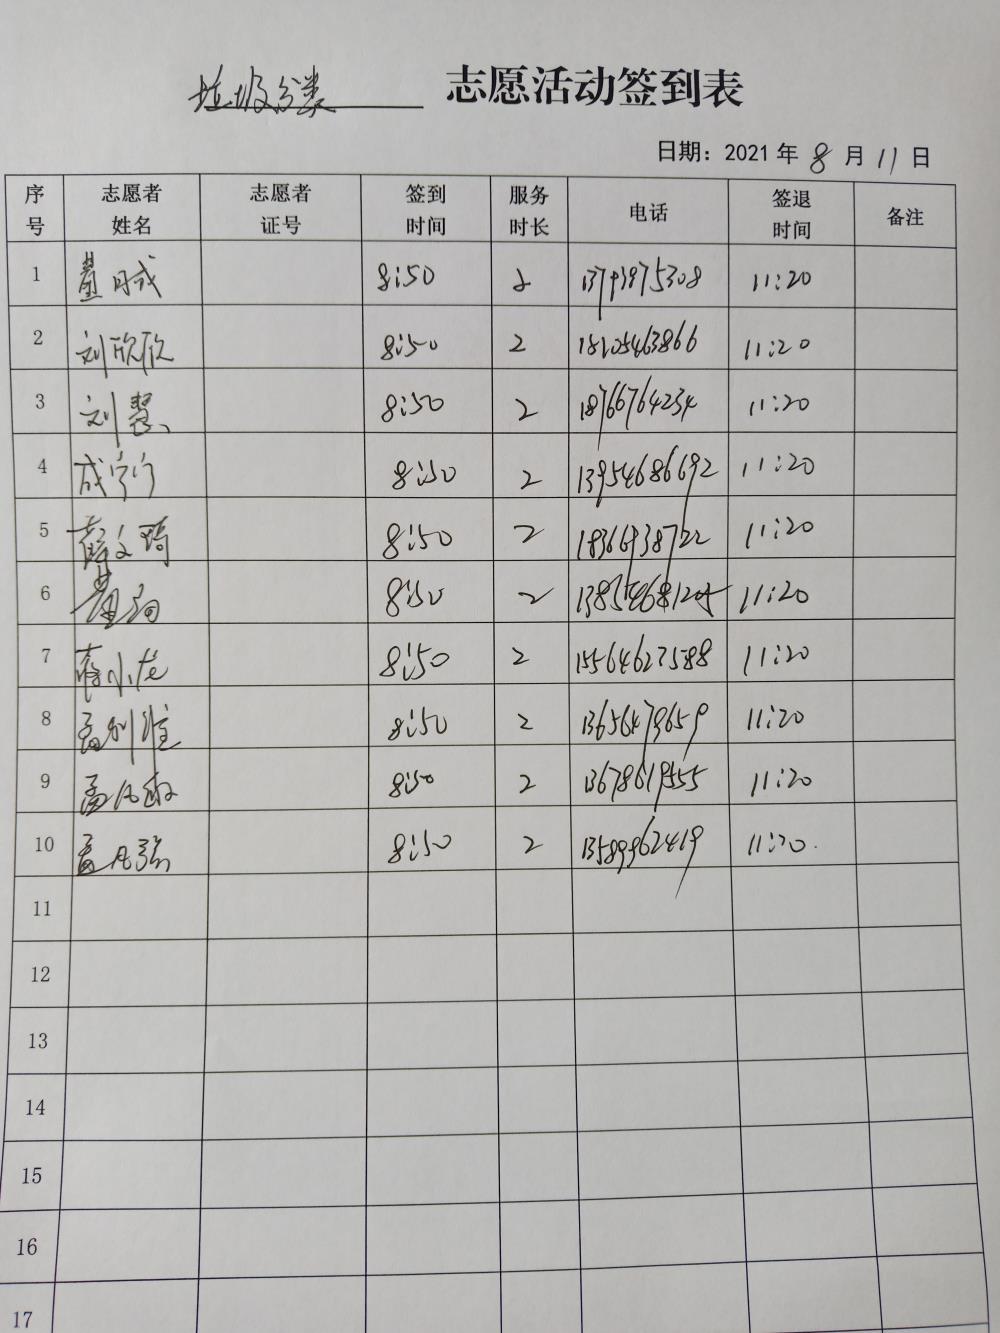 垃圾分类 志愿活动签到表
日期：2021年 8 月 11 日
序号 志愿者姓名 志愿者证号 签到时间 服务时长 电话 签退时间 备注
1 8:50 2 13793975308 11:20
2 刘欣欣 8:50 2 18105463866 11:20
3 刘慧 8:50 2 18766764234 11:20
4 成宁宁 8:50 2 13954686692 11:20
5 薛文琦 8:50 2 11:20
6 8:50 2 13854681205 11:20
7 蒋小龙 8:50 2 15564627588 11:20
8 8:50 2 13656479659 11:20
9 8:50 2 13678619555 11:20
10 孟凡强 8:50 2 13589962419 11:20
11
12
13
14
15
16
17